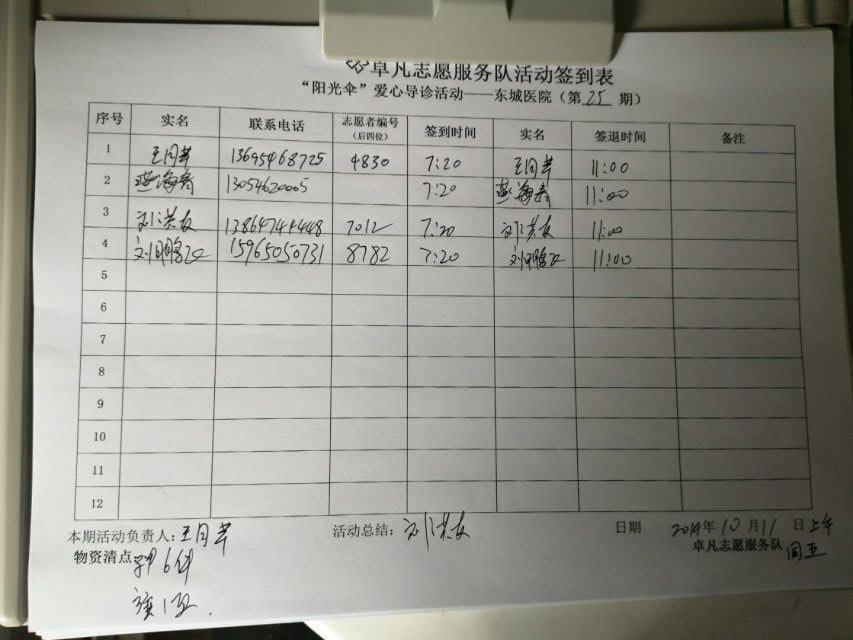 卓凡志愿服务队活动签到表
“阳光伞”爱心导诊活动——东城医院（第 25 期）
序号 实名 联系电话 志愿者编号（后四位） 签到时间 实名 签退时间 备注
1 王月芹 13695468725 4830 7:20 王月芹 11:00
2 13054620005 7:20 11:00
3 刘洪友 13864744448 7012 7:20 刘洪友 11:00
4 15965050731 8782 7:20 11:00
5
6
7
8
9
10
11
12
本期活动负责人：王月芹 活动总结：刘洪友 日期 2019年 10 月 11 日 上午
物资清点 卓凡志愿服务队 周五